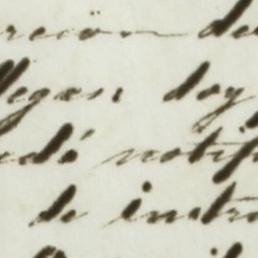 reción de
llegan doy
edó notif
de instr